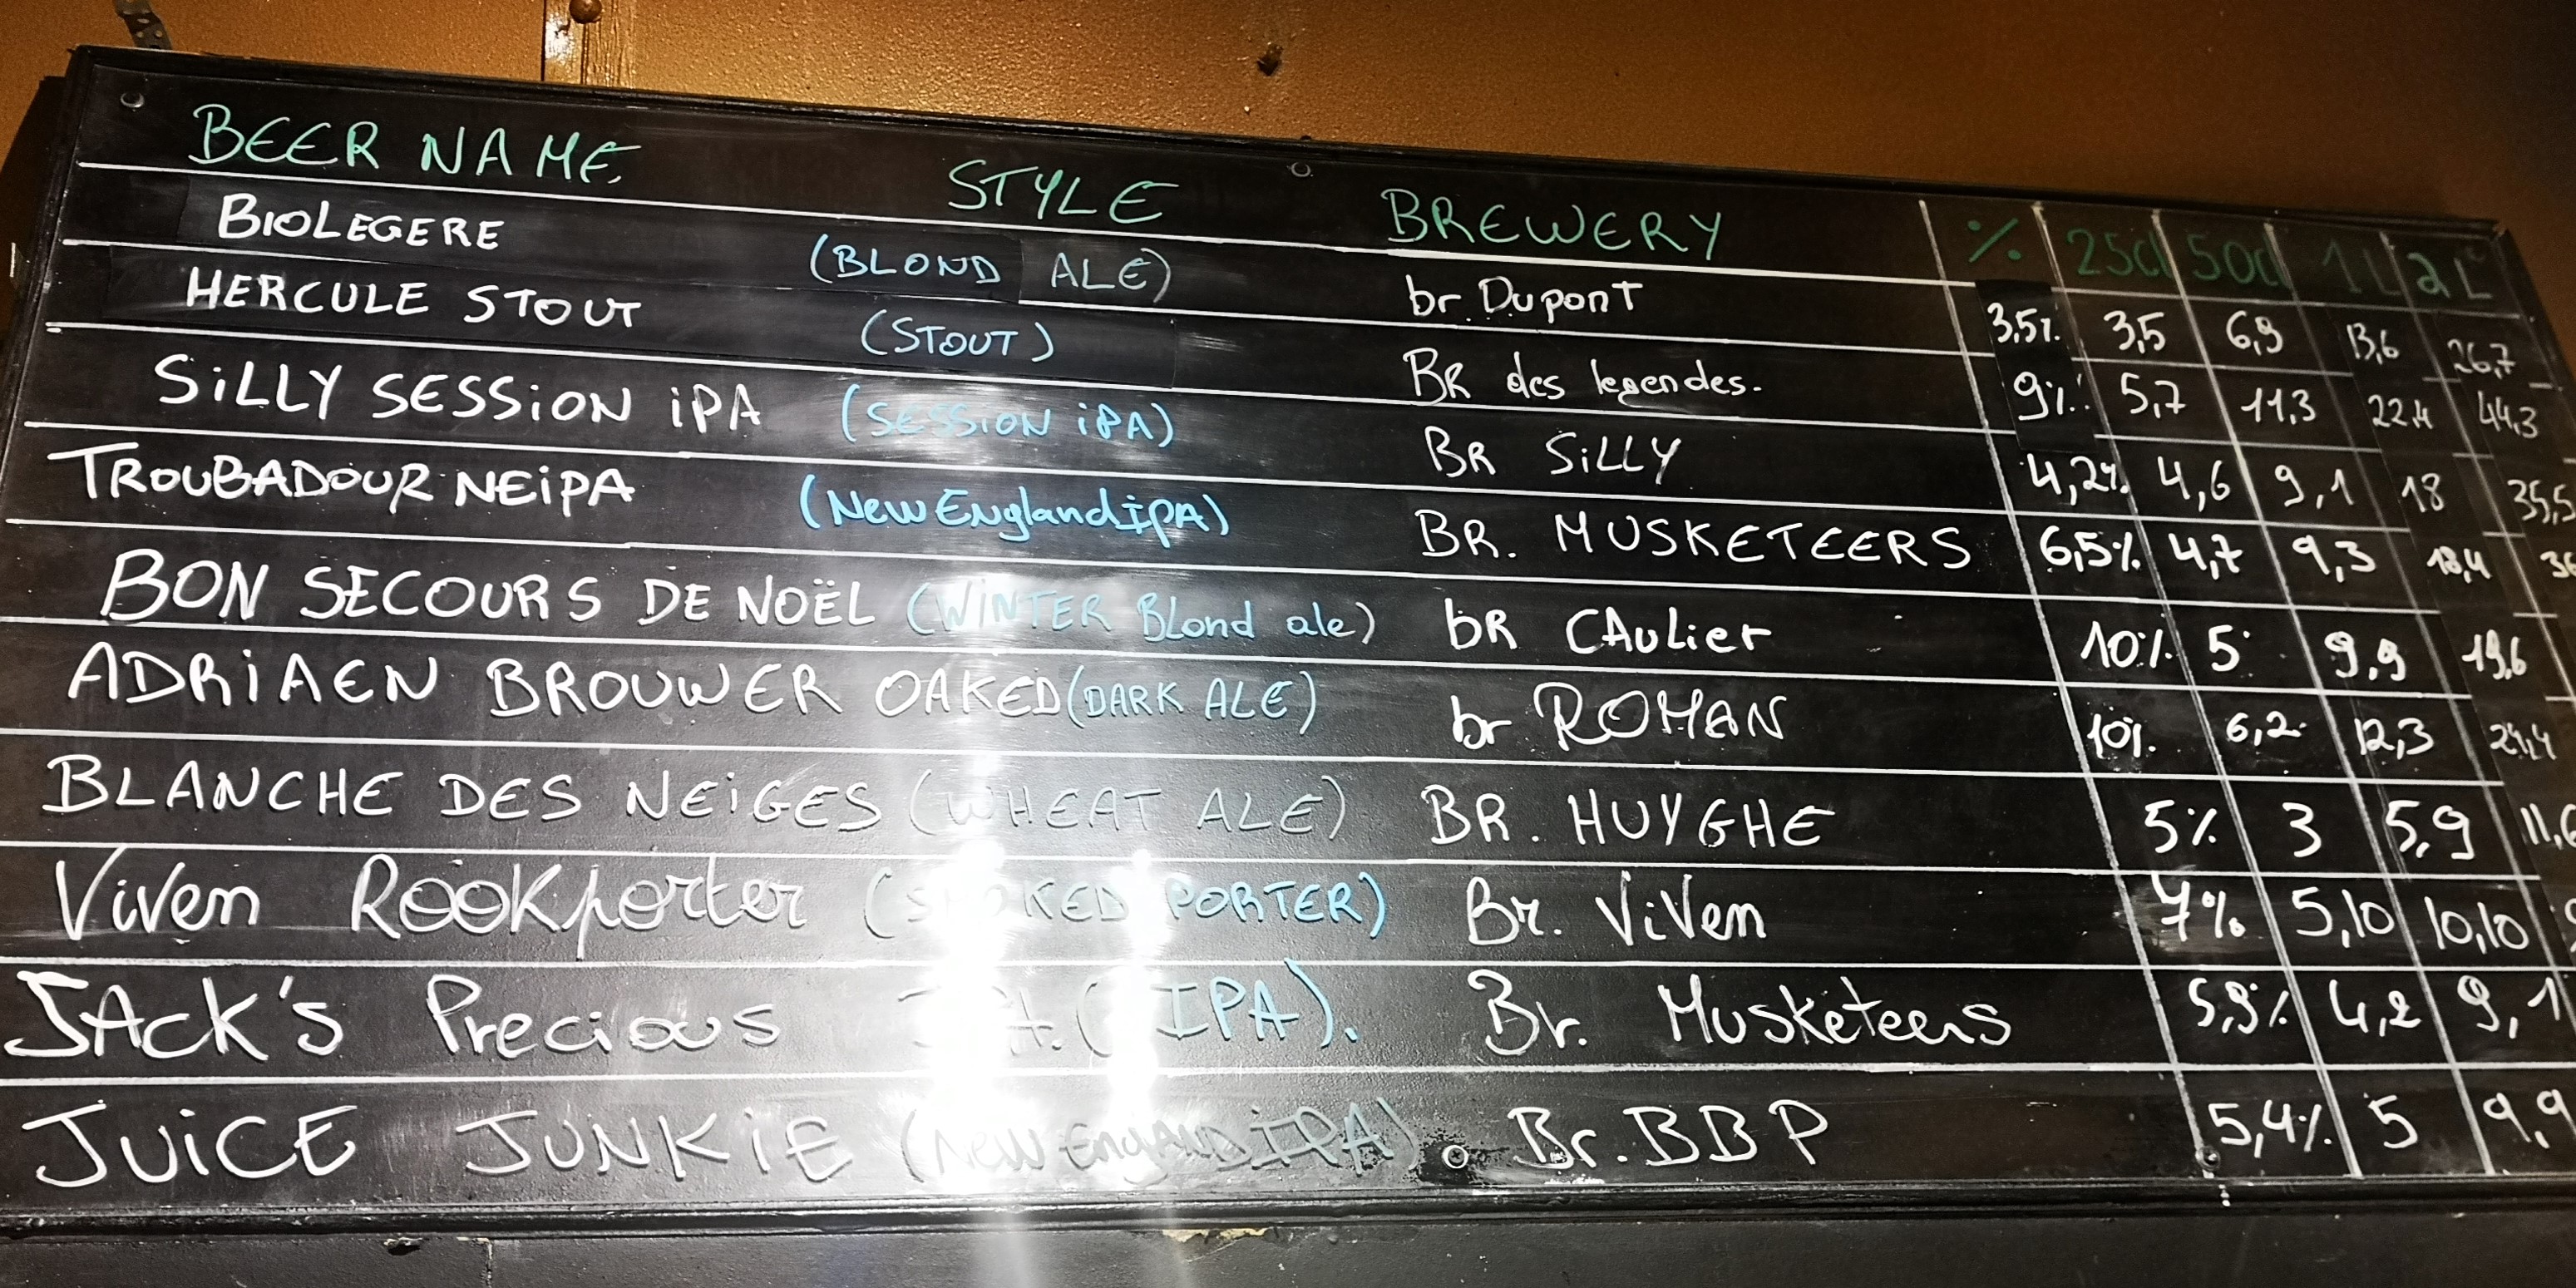 BEER NAME STYLE BREWERY % 25cl 50cl 1L 2L
BIOLEGERE (BLOND ALE) br. Dupont 3,5% 3,5 6,9 13,6 26,7
HERCULE STOUT (STOUT) BR des legendes. 9% 5,7 11,3 22,4 44,3
SiLLY SESSiON iPA (SESSION iPA) BR SiLLY 4,2% 4,6 9,1 18 35,5
TROUBADOUR NEiPA (New England IPA) BR. MUSKETEERS 6,5% 4,7 9,3 18,4
BON SECOURS DE NOËL (WINTER Blond ale) bR CAulier 10% 5 9,9 19,6
ADRiAEN BROUWER OAKED (DARK ALE) br ROMAN 10% 6,2 12,3 24,4
BLANCHE DES NEiGES (WHEAT ALE) BR. HUYGHE 5% 3 5,9
ViVen ROOKporter (SMOKED PORTER) Br. ViVen 7% 5,10 10,10
JAck's Precious (IPA). Br. Musketeers 5,9% 4,2 9,1
JUiCE JUNKiE (New ENGLAND IPA) Br. BBP 5,4% 5 9,9